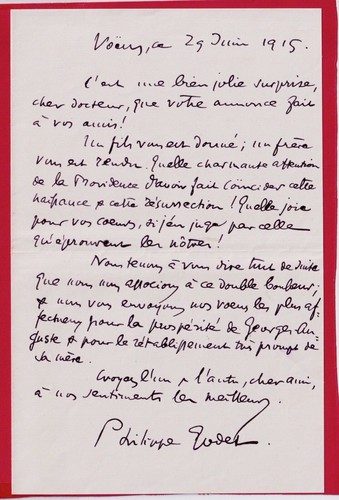 Voëns, ce 29 Juin 1915.
C'est une bien jolie surprise,
cher docteur, que votre annonce fait
à vos amis!
Un fils vous est donné; un frère
vous est rendu. Quelle charmante attention
de la Providence d'avoir fait coïncider cette
naissance & cette résurrection! Quelle joie
pour vos coeurs, si j'en juge par celle
qu'éprouvent les nôtres!
Nous tenons à vous dire tout de suite
que nous nous associons à ce double bonheur;
& nous vous envoyons nos voeux les plus af-
fectueux pour la prospérité de Georges Au-
guste & pour le rétablissement très prompt de
sa mère.
Croyez l'un & l'autre, cher ami,
à nos sentiments les meilleurs.
Philippe Godet.